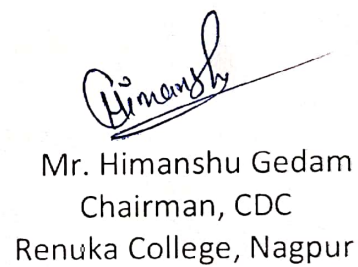 Himanshu
Mr. Himanshu Gedam
Chairman, CDC
Renuka College, Nagpur